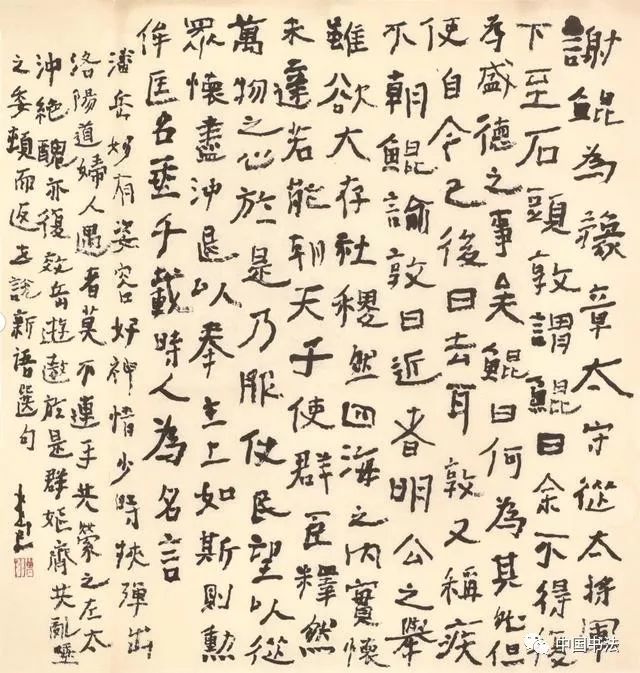 謝鯤為豫章太守從太將軍
下至石頭敦謂鯤曰余不得復
為盛德之事矣鯤曰何為其然但
使自今已後日去耳敦又稱疾
不朝鯤諭敦曰近者明公之舉
雖欲大存社稷然四海之內實懷
未達若能朝天子使群臣釋然
萬物之心於是乃服仗民望以從
眾懷盡沖退以奉主上如斯則勳
侔匡名垂千載時人為名言
潘岳妙有姿容好神情少時挾彈出
洛陽道婦人遇者莫不連手共縈之左太
沖絕醜亦復效岳遊遨於是群嫗齊共亂唾
之委頓而返世說新語選句
中国书法